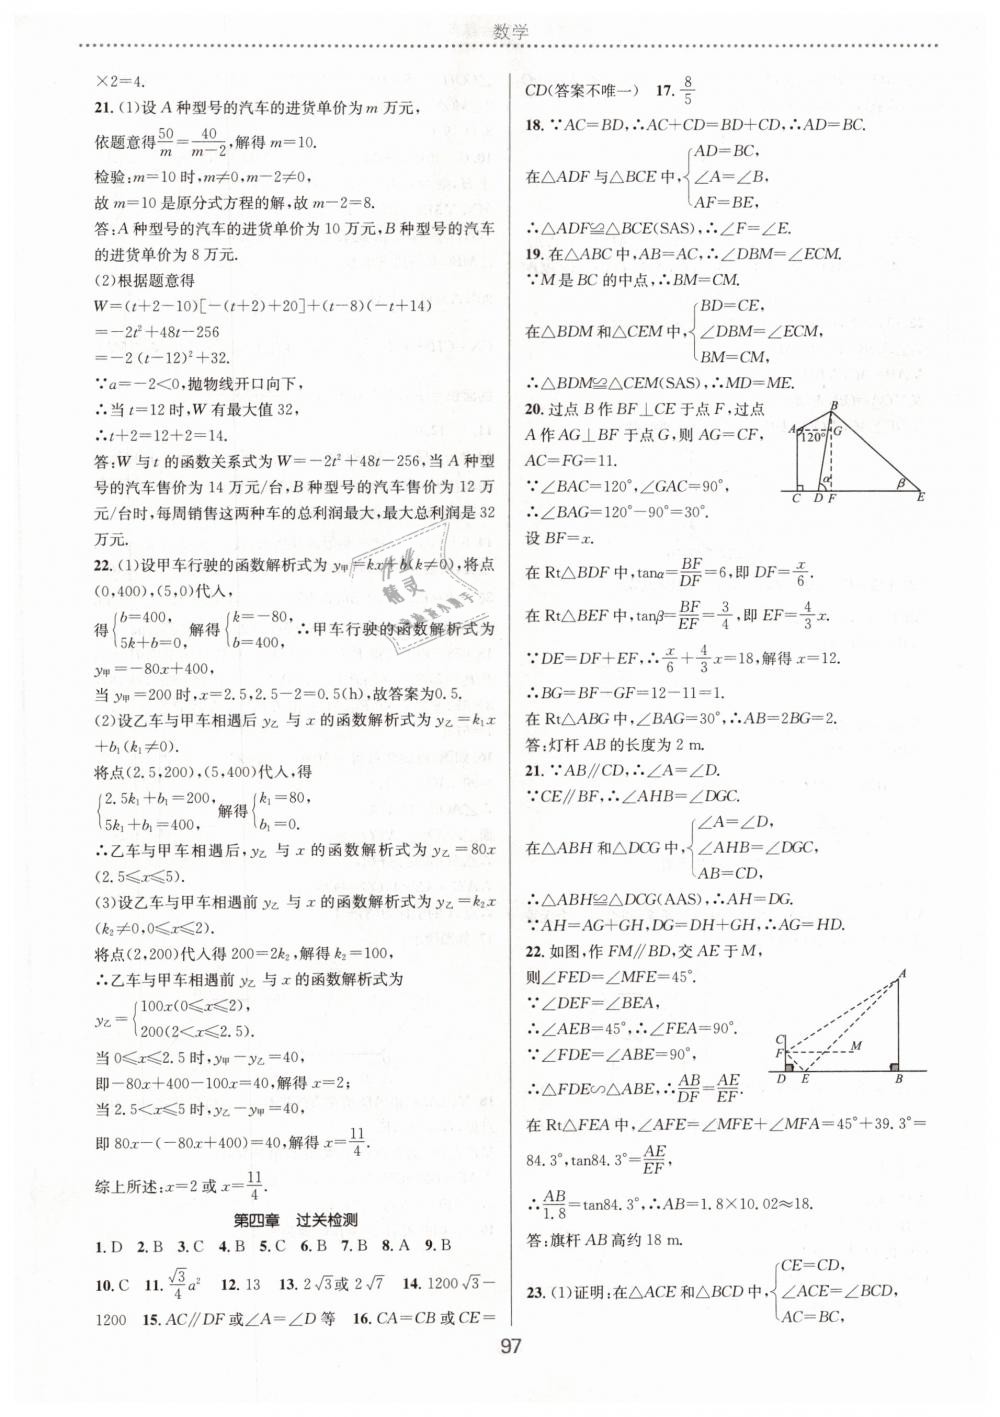 数学
×2=4.
21. (1)设 A 种型号的汽车的进货单价为 m 万元,
依题意得50/m=40/(m-2),解得 m=10.
检验:m=10 时,m≠0,m-2≠0,
故 m=10 是原分式方程的解,故 m-2=8.
答:A 种型号的汽车的进货单价为 10 万元,B 种型号的汽车
的进货单价为 8 万元.
(2)根据题意得
W=(t+2-10)[-(t+2)+20]+(t-8)(-t+14)
=-2t²+48t-256
=-2 (t-12)²+32.
∵a=-2<0,抛物线开口向下,
∴当 t=12 时,W 有最大值 32,
∴t+2=12+2=14.
答:W 与 t 的函数关系式为 W=-2t²+48t-256,当 A 种型
号的汽车售价为 14 万元/台,B 种型号的汽车售价为 12 万
元/台时,每周销售这两种车的总利润最大,最大总利润是 32
万元.
22. (1)设甲车行驶的函数解析式为 y甲=kx+b(k≠0),将点
(0,400),(5,0)代入,
得{b=400, 5k+b=0, 解得{k=-80, b=400, ∴甲车行驶的函数解析式为
y甲=-80x+400,
当 y甲=200 时,x=2.5,2.5-2=0.5(h),故答案为0.5.
(2)设乙车与甲车相遇后 y乙 与 x 的函数解析式为 y乙=k₁x
+b₁(k₁≠0).
将点(2.5,200),(5,400)代入,得
{2.5k₁+b₁=200, 5k₁+b₁=400, 解得{k₁=80, b₁=0.
∴乙车与甲车相遇后,y乙 与 x 的函数解析式为 y乙=80x
(2.5≤x≤5).
(3)设乙车与甲车相遇前 y乙 与 x 的函数解析式为 y乙=k₂x
(k₂≠0,0≤x≤2).
将点(2,200)代入得 200=2k₂,解得 k₂=100,
∴乙车与甲车相遇前 y乙 与 x 的函数解析式为
y乙={100x(0≤x≤2), 200(2<x≤2.5).
当 0≤x≤2.5 时,y甲-y乙=40,
即-80x+400-100x=40,解得 x=2;
当 2.5<x≤5 时,y乙-y甲=40,
即 80x-(-80x+400)=40,解得 x=11/4.
综上所述:x=2 或 x=11/4.
第四章 过关检测
1. D 2. B 3. C 4. B 5. C 6. B 7. B 8. A 9. B
10. C 11. √3/4 a² 12. 13 13. 2√3或 2√7 14. 1200√3-
1200 15. AC∥DF 或∠A=∠D 等 16. CA=CB 或 CE=
CD(答案不唯一) 17. 8/5
18. ∵AC=BD,∴AC+CD=BD+CD,∴AD=BC.
在△ADF 与△BCE 中,{AD=BC, ∠A=∠B, AF=BE,
∴△ADF≌△BCE(SAS),∴∠F=∠E.
19. 在△ABC 中,AB=AC,∴∠DBM=∠ECM.
∵M 是 BC 的中点,∴BM=CM.
在△BDM 和△CEM 中,{BD=CE, ∠DBM=∠ECM, BM=CM,
∴△BDM≌△CEM(SAS),∴MD=ME.
20. 过点 B 作 BF⊥CE 于点 F,过点
A 作 AG⊥BF 于点 G,则 AG=CF,
AC=FG=11.
∵∠BAC=120°,∠GAC=90°,
∴∠BAG=120°-90°=30°.
设 BF=x.
B
A G
120°
α β
C D F E
在 Rt△BDF 中,tanα=BF/DF=6,即 DF=x/6.
在 Rt△BEF 中,tanβ=BF/EF=3/4,即 EF=4/3 x.
∵DE=DF+EF,∴x/6+4/3 x=18,解得 x=12.
∴BG=BF-GF=12-11=1.
在 Rt△ABG 中,∠BAG=30°,∴AB=2BG=2.
答:灯杆 AB 的长度为 2 m.
21. ∵AB∥CD,∴∠A=∠D.
∵CE∥BF,∴∠AHB=∠DGC.
在△ABH 和△DCG 中,{∠A=∠D, ∠AHB=∠DGC, AB=CD,
∴△ABH≌△DCG(AAS),∴AH=DG.
∵AH=AG+GH,DG=DH+GH,∴AG=HD.
22. 如图,作 FM∥BD,交 AE 于 M,
则∠FED=∠MFE=45°.
∵∠DEF=∠BEA,
∴∠AEB=45°,∴∠FEA=90°.
∵∠FDE=∠ABE=90°,
∴△FDE∽△ABE,∴AB/DF=AE/EF.
A
C
F M
D E B
在 Rt△FEA 中,∠AFE=∠MFE+∠MFA=45°+39.3°=
84.3°,tan84.3°=AE/EF,
∴AB/1.8=tan84.3°,∴AB=1.8×10.02≈18.
答:旗杆 AB 高约 18 m.
23. (1)证明:在△ACE 和△BCD 中,{CE=CD, ∠ACE=∠BCD, AC=BC,
97
作业
精灵